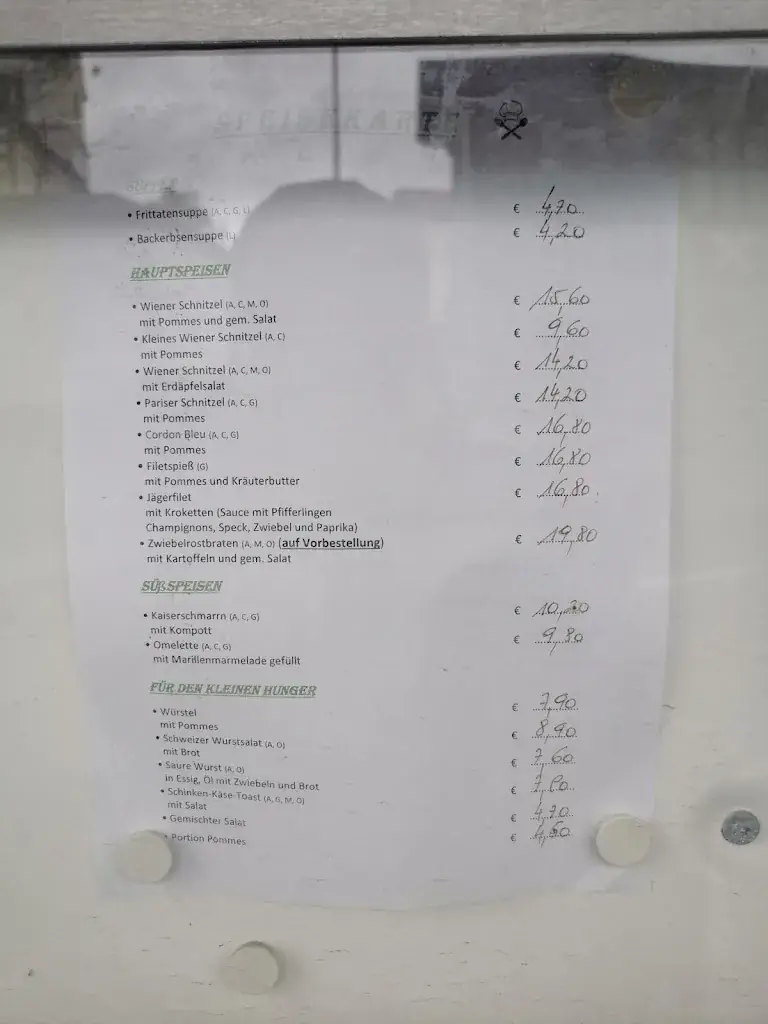 SPEISEKARTE
SUPPEN
• Frittatensuppe (A, C, G, L) € 4,70
• Backerbsensuppe (L) € 4,20
HAUPTSPEISEN
• Wiener Schnitzel (A, C, M, O) € 15,60
mit Pommes und gem. Salat
• Kleines Wiener Schnitzel (A, C) € 9,60
mit Pommes
• Wiener Schnitzel (A, C, M, O) € 14,20
mit Erdäpfelsalat
• Pariser Schnitzel (A, C, G) € 14,20
mit Pommes
• Cordon Bleu (A, C, G) € 16,80
mit Pommes
• Filetspieß (G) € 16,80
mit Pommes und Kräuterbutter
• Jägerfilet € 16,80
mit Kroketten (Sauce mit Pfifferlingen
Champignons, Speck, Zwiebel und Paprika)
• Zwiebelrostbraten (A, M, O) (auf Vorbestellung) € 19,80
mit Kartoffeln und gem. Salat
SÜßSPEISEN
• Kaiserschmarrn (A, C, G) €
mit Kompott
• Omelette (A, C, G) € 9,80
mit Marillenmarmelade gefüllt
FÜR DEN KLEINEN HUNGER
• Würstel € 7,90
mit Pommes
• Schweizer Wurstsalat (A, O) € 8,90
mit Brot
• Saure Wurst (A, O) € 7,60
in Essig, Öl mit Zwiebeln und Brot
• Schinken-Käse-Toast (A, G, M, O) €
mit Salat
• Gemischter Salat € 4,70
• Portion Pommes €